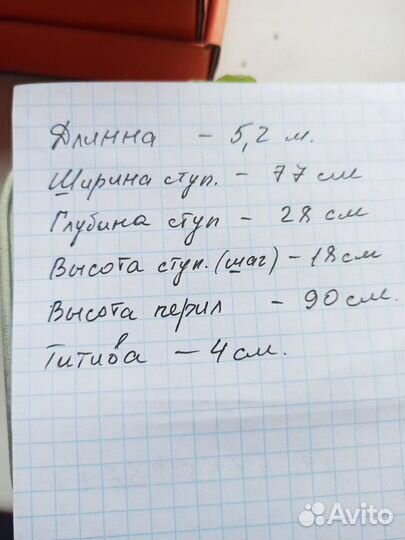 Длинна - 5,2 м.
Ширина ступ. - 77 см
Глубина ступ - 28 см
Высота ступ. (шаг) - 18 см
Высота перил - 90 см.
Титива - 4 см.
Avito